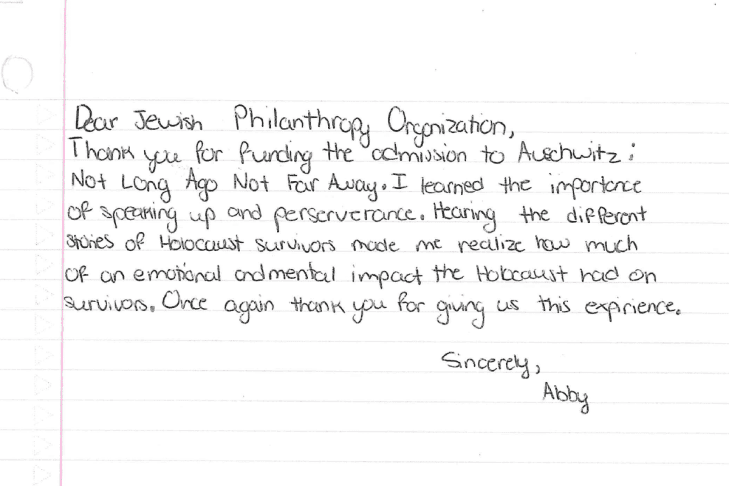 Dear Jewish Philanthropy Organization,
Thank you for funding the admission to Auschwitz:
Not Long Ago Not Far Away. I learned the importance
of speaking up and perserverance. Hearing the different
stories of Holocaust survivors made me realize how much
of an emotional and mental impact the Holocaust had on
survivors. Once again thank you for giving us this expirience.
Sincerely,
Abby